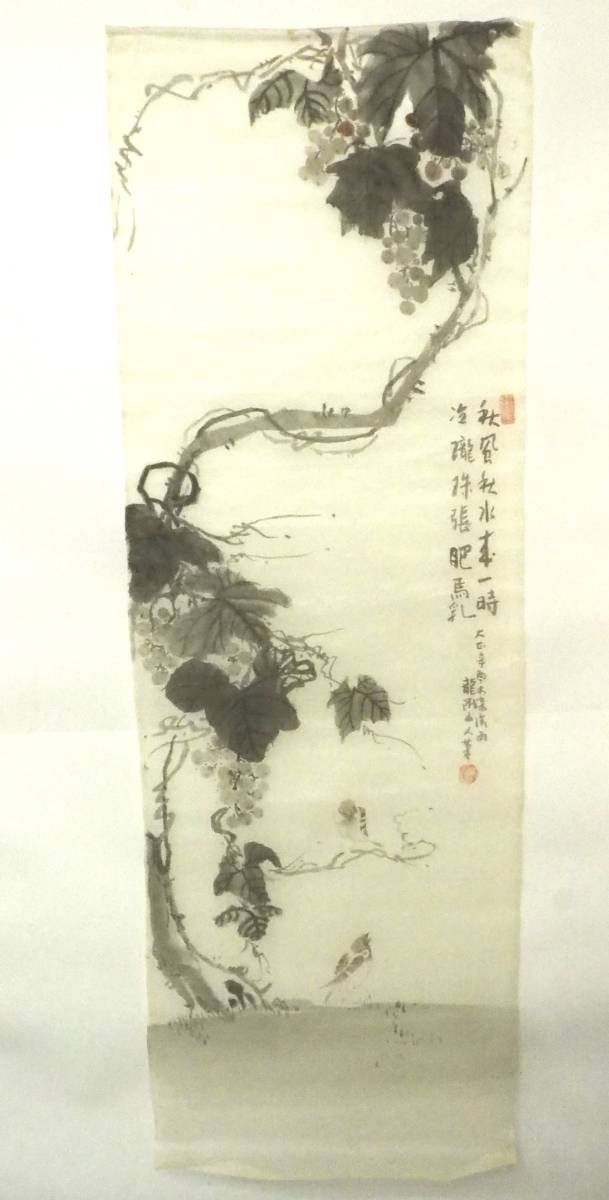 秋風秋水来一時
冷瓏珠張肥馬乳
大正辛酉
龍
山人筆